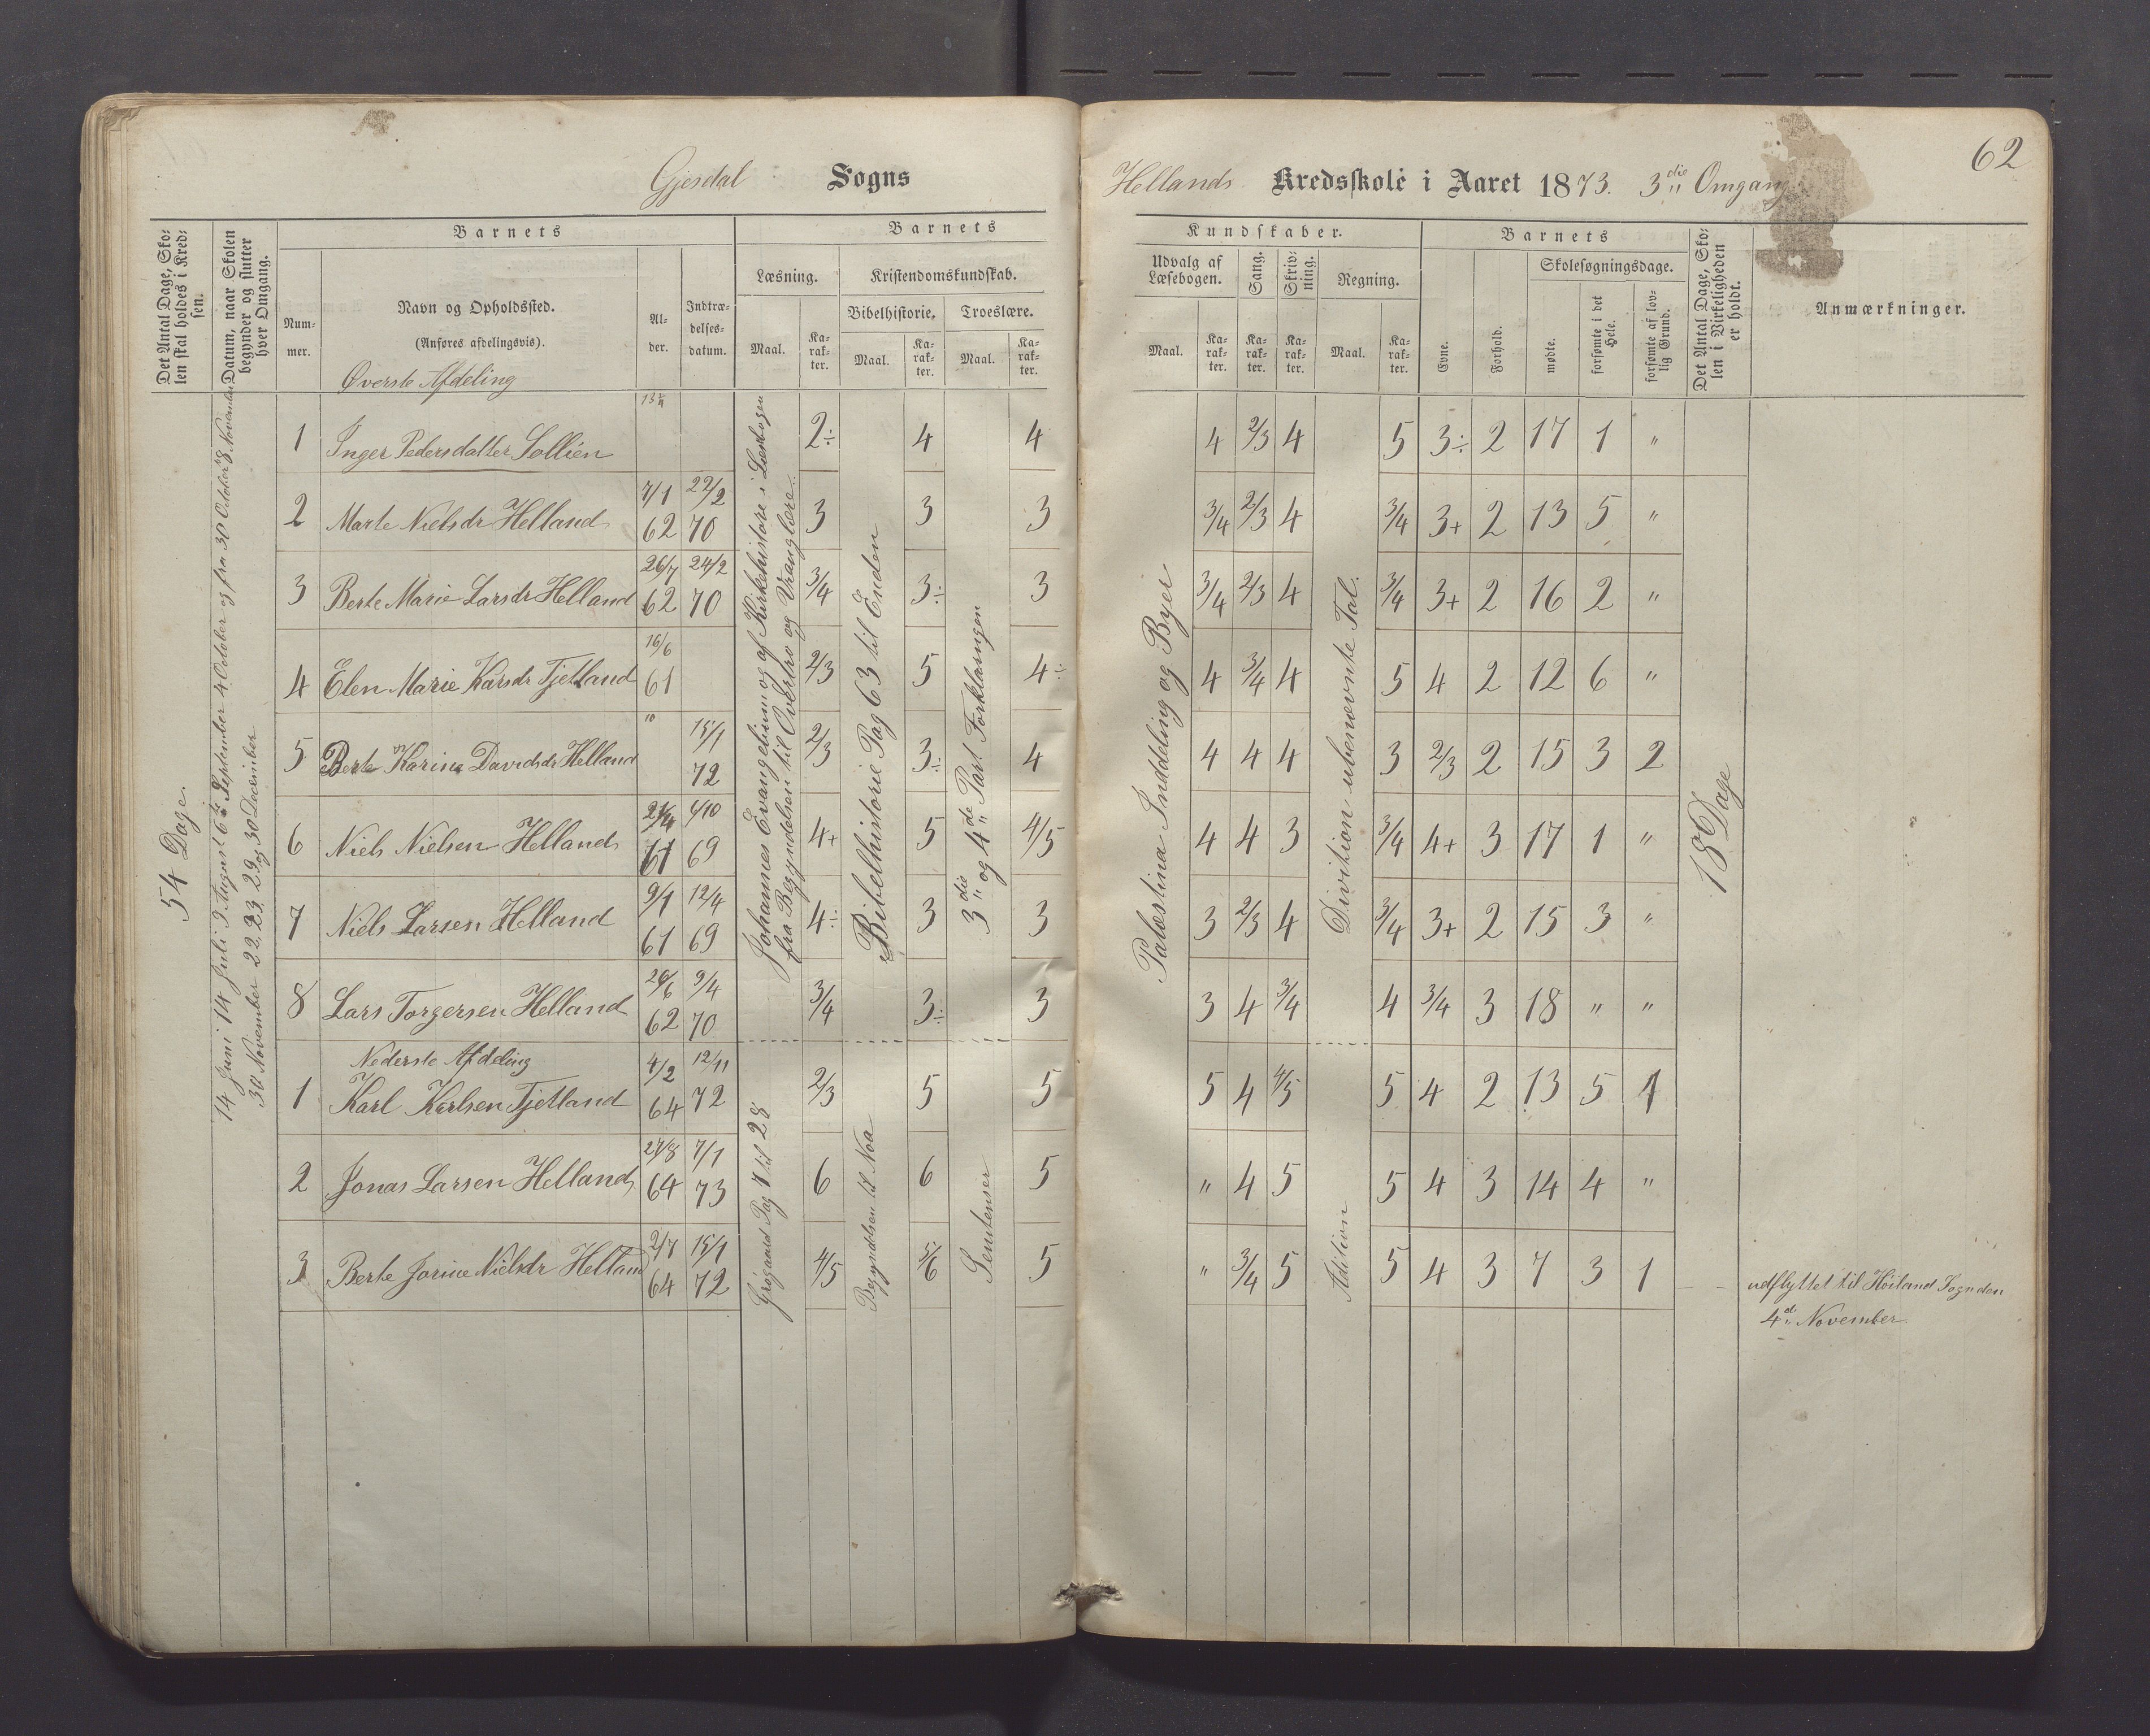 62
Gjesdal Sogns Hellands Kredsskole i Aaret 1873. 3die Omgang
Det Antal Dage, Sko-
len skal holdes i Kred-
sen.
Datum, naar Skolen
begynder og slutter
hver Omgang.
Barnets
Num-
mer.
Navn og Opholdssted.
(Anføres afdelingsvis).
Al-
der.
Indtræ-
delses-
datum.
Barnets
Læsning.
Maal.
Ka-
rak-
ter.
Kristendomskundskab.
Bibelhistorie.
Maal.
Ka-
rak-
ter.
Troeslære.
Maal.
Ka-
rak-
ter.
Kundskaber.
Udvalg af
Læsebogen.
Maal.
Ka-
rak-
ter.
Sang.
Ka-
rak-
ter.
Skriv-
ning.
Ka-
rak-
ter.
Regning.
Maal.
Ka-
rak-
ter.
Barnets
Evne.
Forhold.
Skolesøgningsdage.
mødte.
forsømte i det
Hele.
forsømte af lov-
lig Grund.
Det Antal Dage, Sko-
len i Virkeligheden
er holdt.
Anmærkninger.
54 Dage.
14 Juni 14 Juli 9 August 6te September 4 October og fra 30 October 8 November
30 November 22, 23, 29 og 30 December
Johannes Evangelium og af Kirkehistorie i Læsebogen
fra Begyndelsen til Overtro og Vranglære.
Bibelhistorie Pag 63 til Enden
3die og 4de Part Forklaringen
Palæstina Inddeling og Byer
Divition ubenævnte Tal.
18 Dage
Øverste Afdeling
1 Inger Pedersdatter Sollien 13¼ 2÷ 4 4 4 2/3 4 5 3÷ 2 17 1 "
2 Marte Nielsdr Helland 7/1 62 22/2 70 3 3 3 3/4 2/3 4 3/4 3+ 2 13 5 "
3 Berte Marie Larsdr Helland 26/7 62 24/2 70 3/4 3÷ 3 3/4 2/3 4 3/4 3+ 2 16 2 "
4 Elen Marie Karsdr Tjetland 16/6 61 2/3 5 4÷ 4 3/4 4 5 4 2 12 6 "
5 Berte Karine Davidsdr Helland " 15/1 72 2/3 3÷ 4 4 4 4 3 2/3 2 15 3 2
6 Niels Nielsen Helland 21/4 61 4/10 69 4+ 5 4/5 4 4 3 3/4 4+ 3 17 1 "
7 Niels Larsen Helland 9/1 61 12/4 69 4÷ 3 3 3 2/3 4 3/4 3+ 2 15 3 "
8 Lars Torgersen Helland 26/6 62 9/4 70 3/4 3÷ 3 3 4 3/4 4 3/4 3 18 " "
Nederste Afdeling
Grøgaard Pag 11 til 28
Begyndelsen til Noa
Sentenser
Adition
1 Karl Karlsen Tjetland 4/2 64 12/11 72 2/3 5 5 5 4 4/5 5 4 2 13 5 1
2 Jonas Larsen Helland 27/8 64 7/1 73 6 6 5 " 4 5 5 4 3 14 4 "
3 Berte Jorine Nielsdr Helland 2/7 64 15/1 72 4/5 5/6 5 " 3/4 5 5 4 3 7 3 1 udflyttet til Høiland Sogn den
4de November.